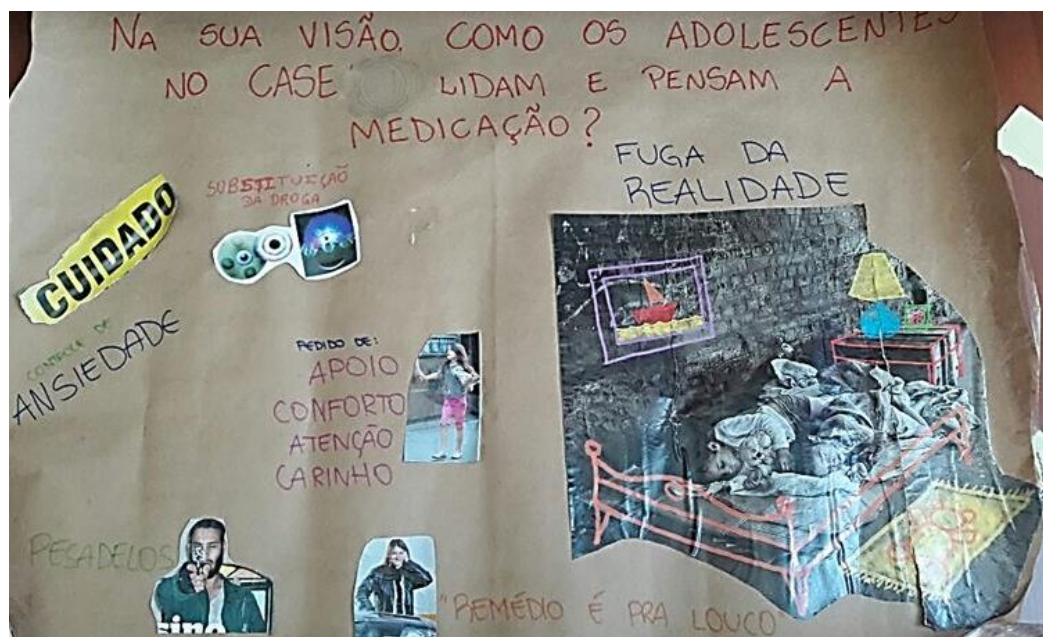 NA SUA VISÃO, COMO OS ADOLESCENTES
NO CASE LIDAM E PENSAM A
MEDICAÇÃO?
CUIDADO
SUBSTITUIÇÃO
DA DROGA
FUGA DA
REALIDADE
CONTROLE DE
ANSIEDADE
PEDIDO DE:
APOIO
CONFORTO
ATENÇÃO
CARINHO
PESADELOS
sino
"REMÉDIO É PRA LOUCO"